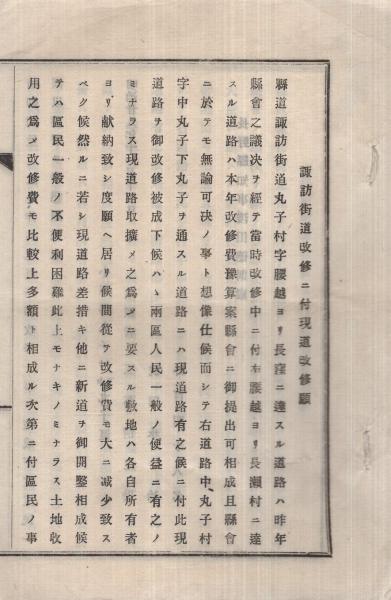 諏訪街道改修ニ付現道改修願
縣道諏訪街道丸子村字腰越ヨリ長窪ニ達スル道路ハ昨年
縣會之議决ヲ經テ當時改修中ニ付右腰越ヨリ長瀬村ニ達
スル道路ハ本年改修費豫算案縣會ニ御提出可相成且縣會
ニ於テモ無論可决ノ事ト想像仕候而シテ右道路中丸子村
字中丸子下丸子ヲ通スル道路ニハ現道路有之候ニ付此現
道路ヲ御改修被成下候ハヽ兩區人民一般ノ便益ニ有之ノ
ミナラス現道路取擴メ之為メニ要スル敷地ハ各自所有者
ヨリ献納致シ度願ヘ居リ候間從テ改修費モ大ニ减少致ス
ベク候然ルニ若シ現道路差措キ他ニ新道ヲ御開鑿相成候
テハ區民一般ノ不便利困難此上モナキノミナラス土地收
用之為メ改修費モ比較上多額ト相成ル次第ニ付區民ノ事